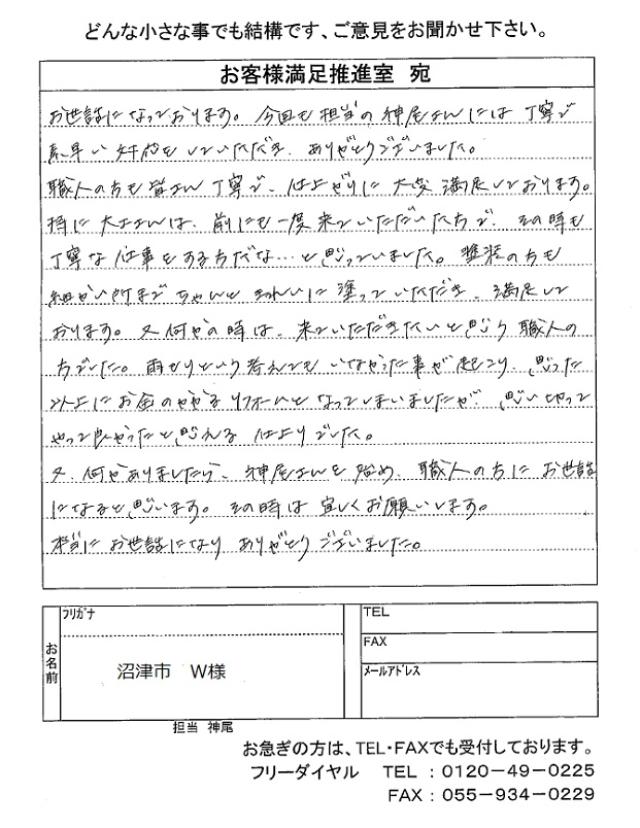 どんな小さな事でも結構です、ご意見をお聞かせ下さい。
お客様満足推進室 宛
お世話になっております。今回も担当の神尾さんには丁寧で
素早い対応をしていただき、ありがとうございました。
職人の方も皆さん丁寧で、仕上がりに大変満足しております。
特に大工さんは、前にも一度来ていただいた方で、その時も
丁寧な仕事をする方だな…と思っていました。塗装の方も
細かい所まできちんときれいに塗っていただき、満足して
おります。又何かの時は、来ていただきたいと思う職人の
方でした。雨もりという考えてもいなかった事が起こり、思った
以上にお金のかかるリフォームとなってしまいましたが、思い切って
やって良かったと思える仕上りでした。
又、何かありましたら、神尾さんを始め、職人の方にお世話
になると思います。その時は宜しくお願いします。
本当にお世話になりありがとうございました。
お名前
フリガナ
沼津市 W様
TEL
FAX
メールアドレス
担当 神尾
お急ぎの方は、TEL・FAXでも受付しております。
フリーダイヤル TEL:0120-49-0225
FAX:055-934-0229